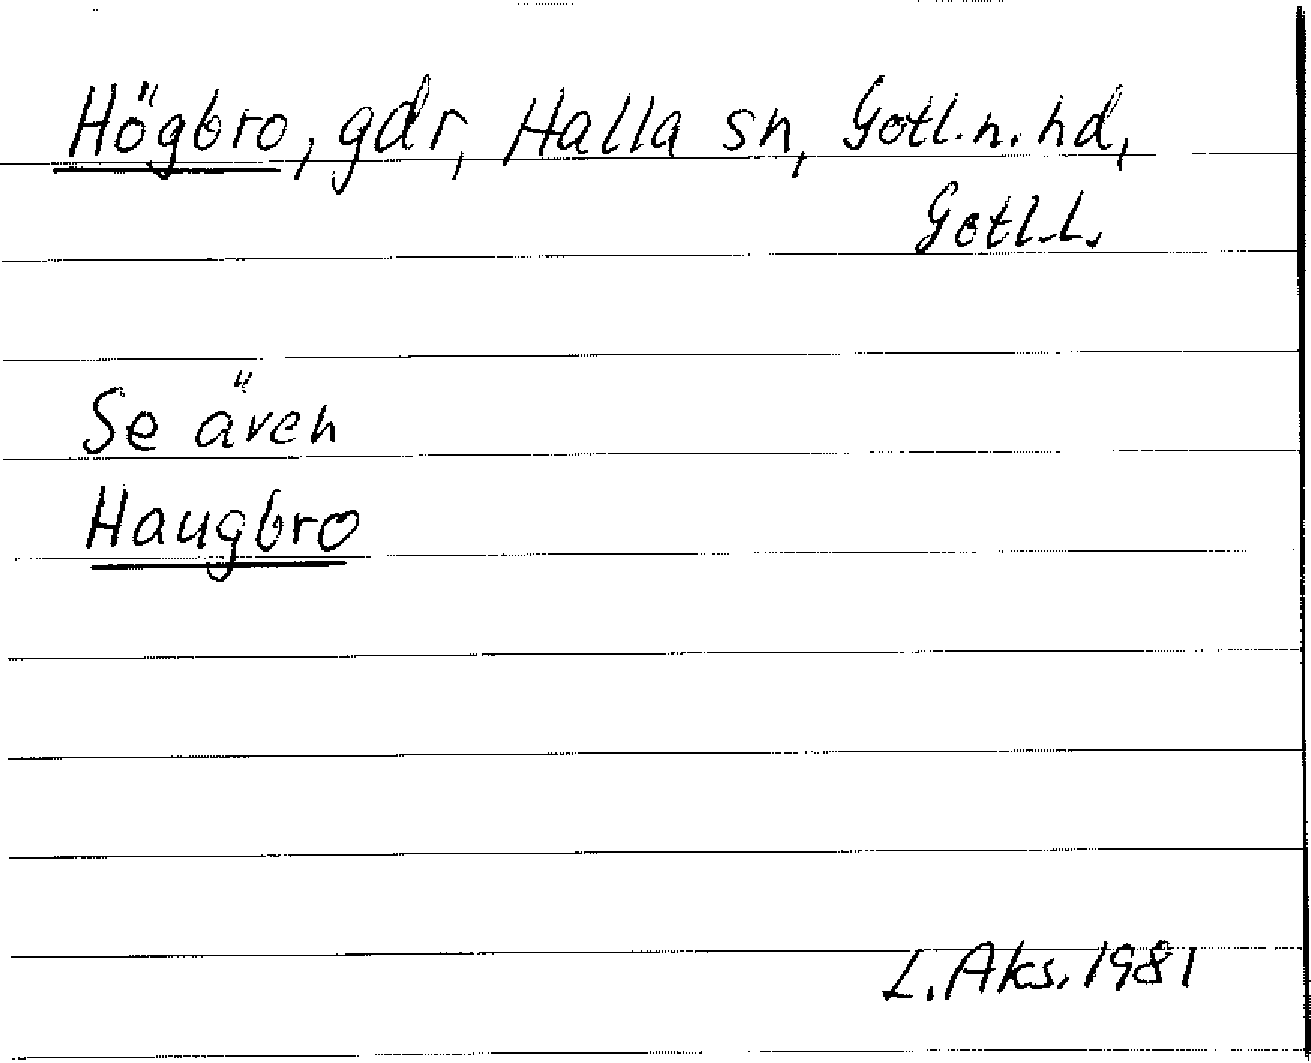 Högbro, gdr, Halla sn, Gotl. n. hd,
Gotl. l.
Se även
Haugbro
L. Aks. 1981